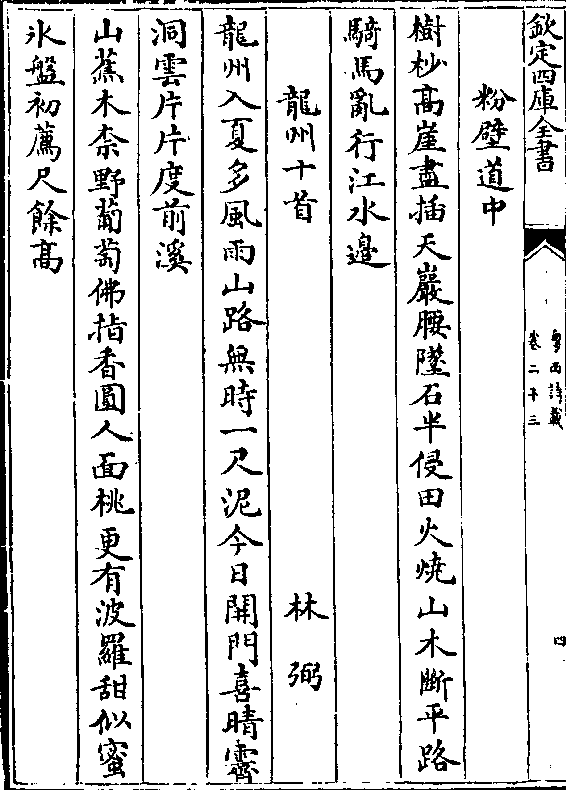 欽定四庫全書
粤西詩載
卷二十三
四
粉壁道中
樹杪髙崖盡插天巖腰墜石半侵田火燒山木斷平路
騎馬亂行江水邊
龍州十首
林弼
龍州入夏多風雨山路無時一尺泥今日開門喜晴霽
洞雲片片度前溪
山蕉木柰野葡萄佛指香圓人面桃更有波羅甜似蜜
氷盤初薦尺餘髙